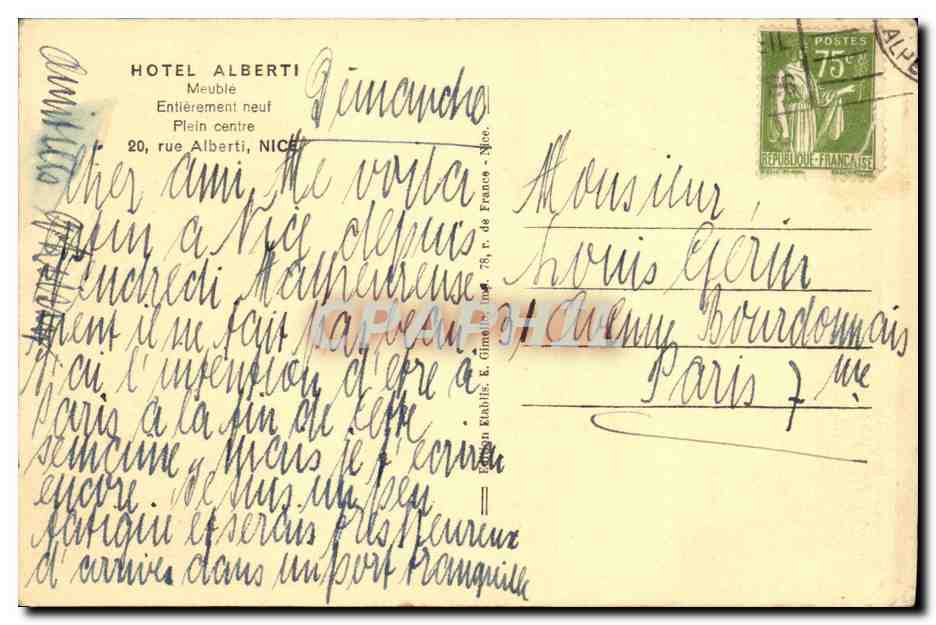 HOTEL ALBERTI
Meublé
Entièrement neuf
Plein centre
20, rue Alberti, NICE
Dimanche
Cher ami, Me voila
enfin a Nice depuis
vendredi Malheureuse
ment il ne fait pas beau
J'ai l'intention d'être à
Paris à la fin de cette
semaine, mais je t'écrirai
encore. Je suis un peu
fatigué et serais très heureux
d'arriver dans un port tranquille
amitiés
Edition Etablis. E. Gimello, Imp. 78, r. de France - Nice.
POSTES
75c
REPUBLIQUE-FRANCAISE
ALPE
Monsieur,
Louis Gérin
31 Avenue Bourdonnais
Paris 7 me
CPAPHIL